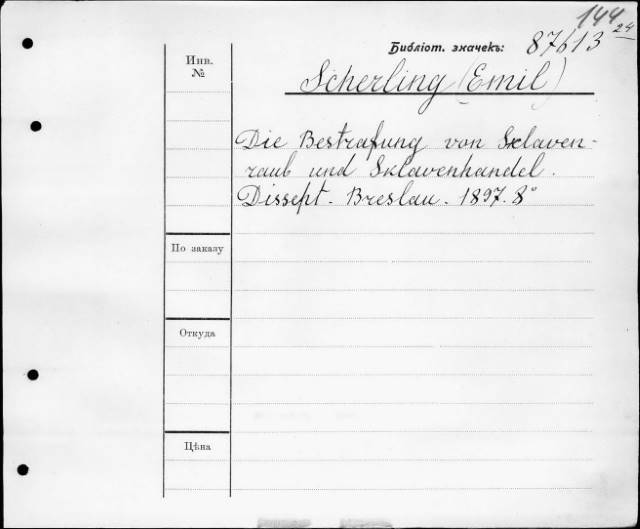 144
24
Библіот. значекъ: 87613
Инв.
№
Scherling (Emil)
Die Bestrafung von Sklaven-
raub und Sklavenhandel.
Dissept. Breslau. 1897. 8°
По заказу
Откуда
Цѣна